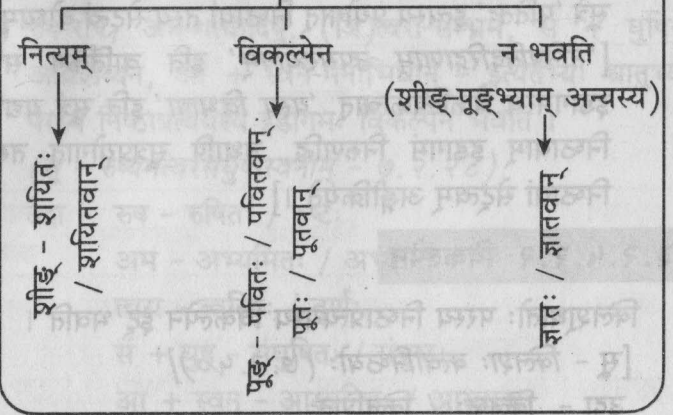 नित्यम्
विकल्पेन
न भवति
(शीङ्-पूङ्भ्याम् अन्यस्य)
शीङ् - शयितः
/ शयितवान्
पूङ् - पवितः / पवितवान्
पूतः / पूतवान्
ज्ञातः / ज्ञातवान्